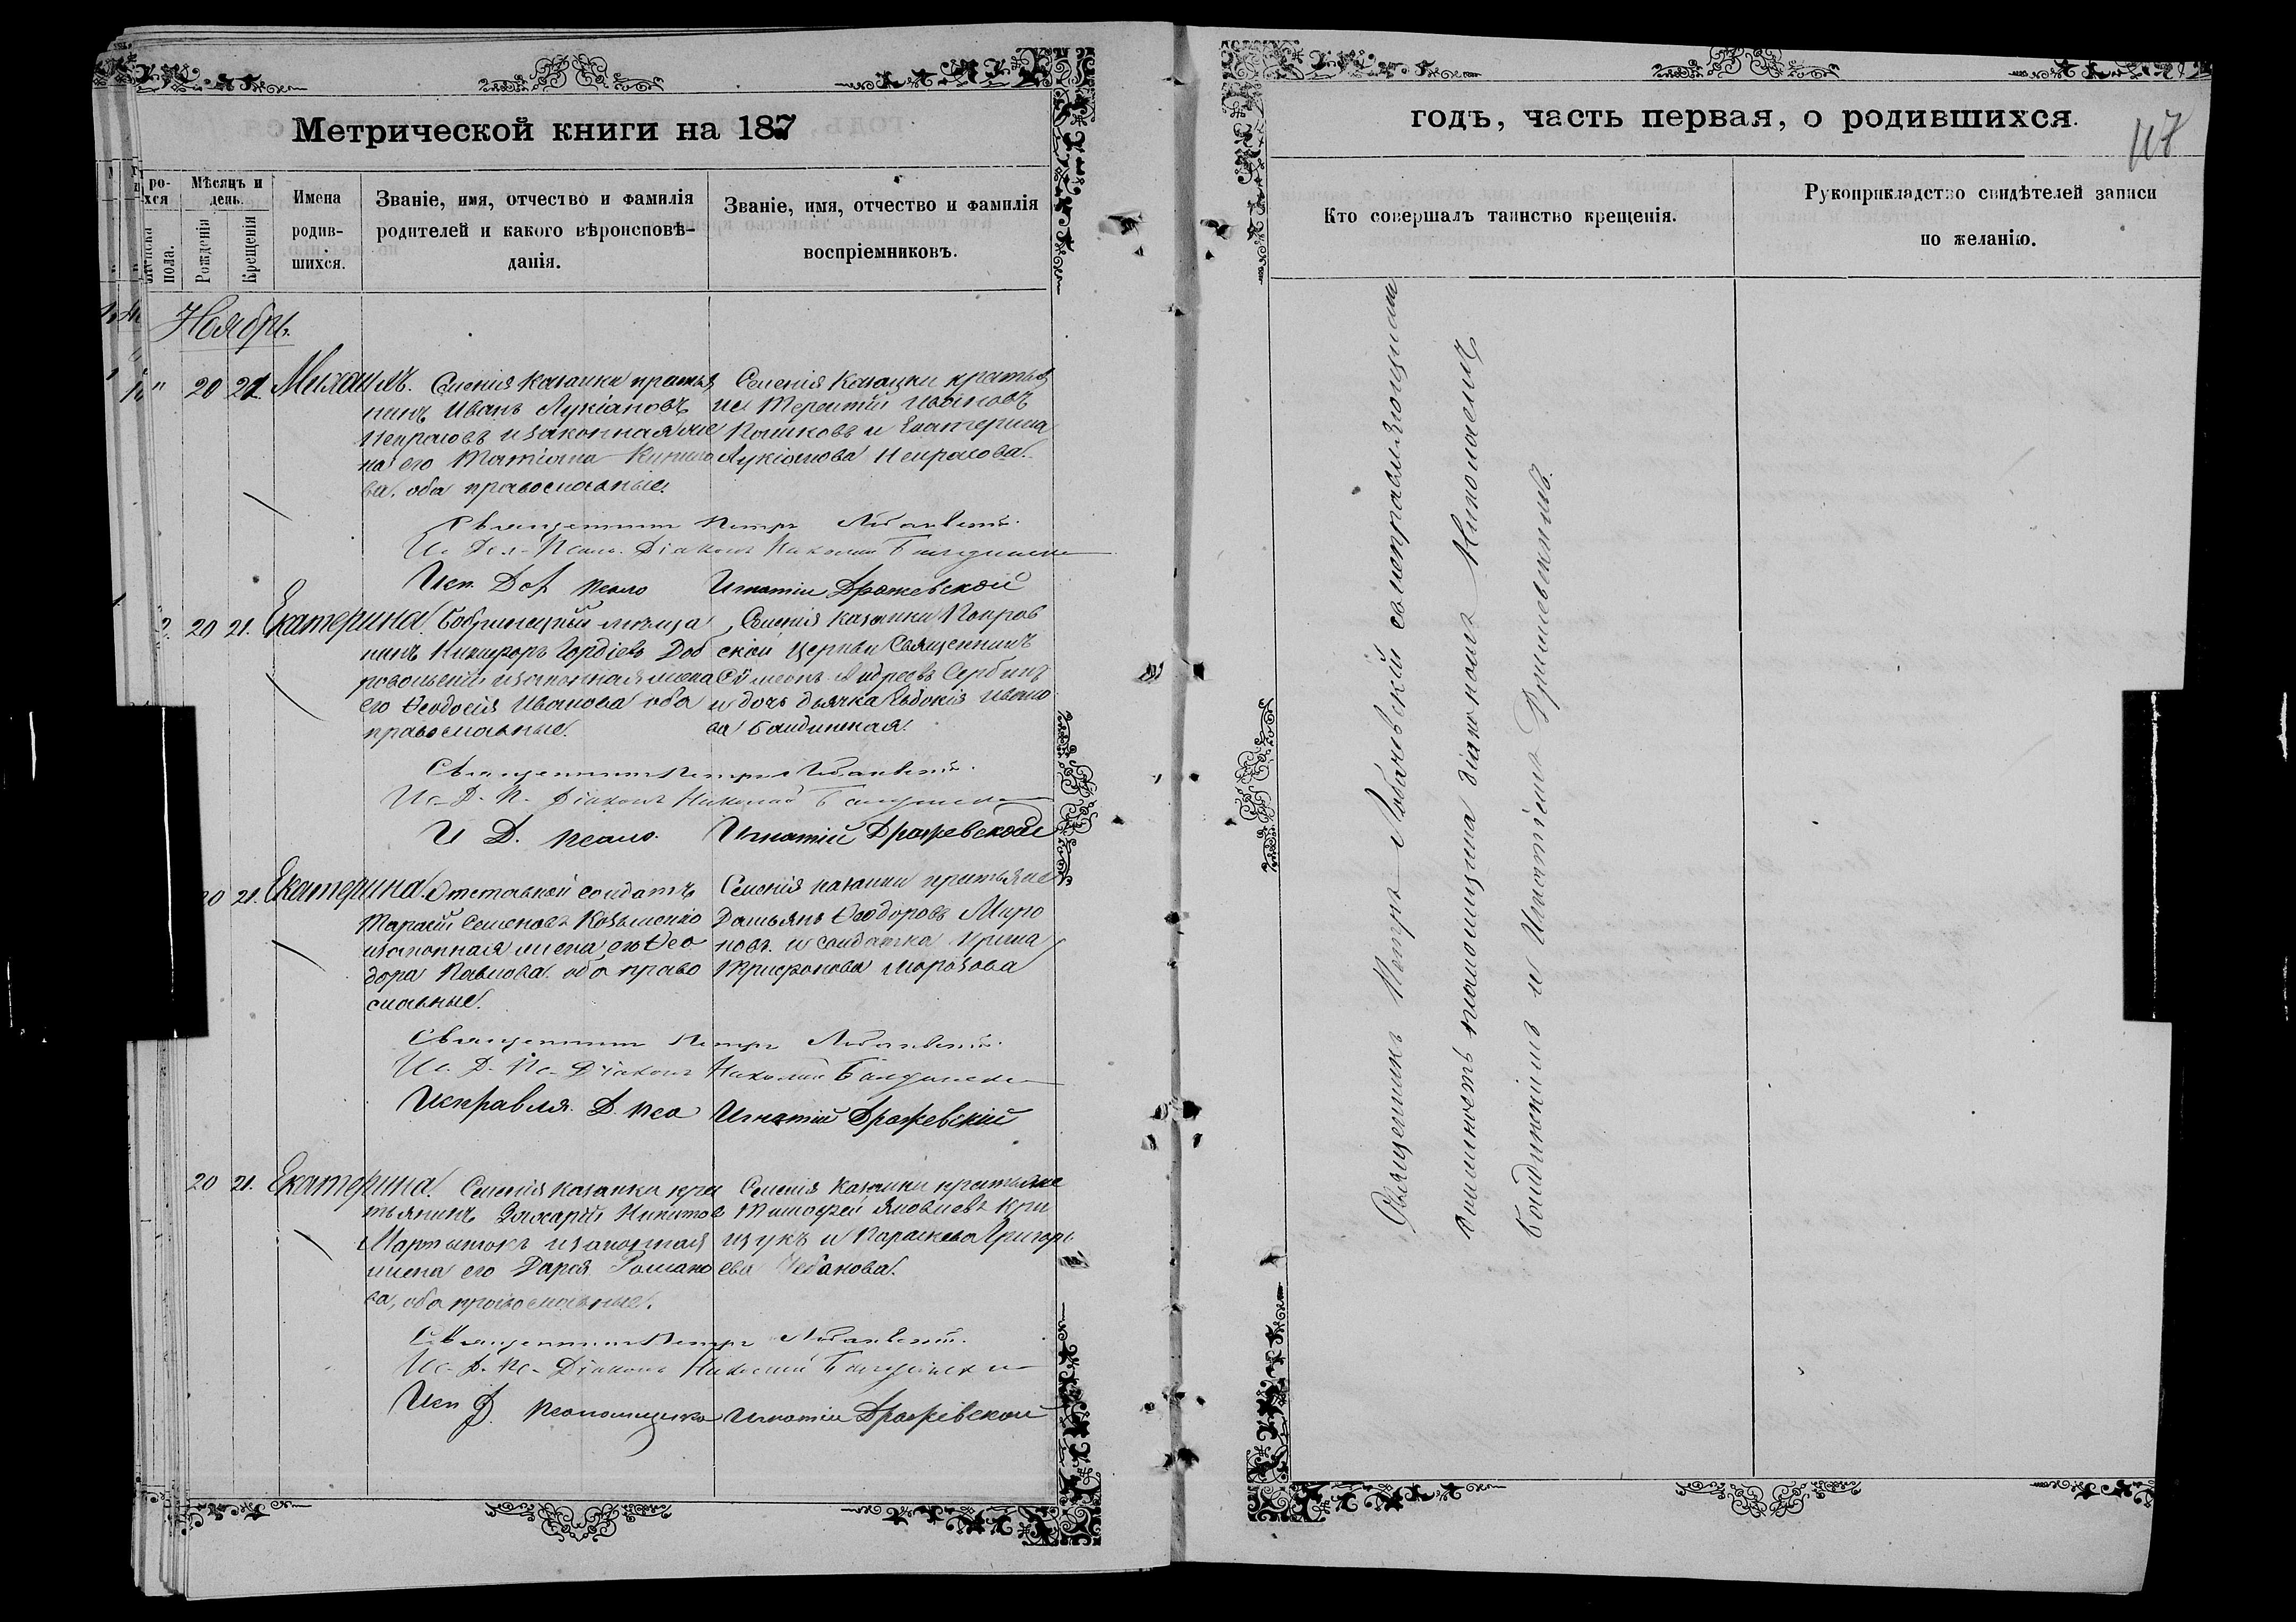 Метрической книги на 187
ро-
хся
Мѣсяцъ и
день.
Имена
родив-
шихся.
Званіе, имя, отчество и фамилія
родителей и какого вѣроисповѣ-
данія.
Званіе, имя, отчество и фамилія
воспріемниковъ.
пола.
Рожденія
Крещенія
Ноябрь.
" 20 21 Михаилъ.
Селенія Казанки кресть
нинъ Иванъ Лукіановъ
Некрасовъ и законная же
на его Татіана Кирило
ва, оба православные.
Селенія Казанки крестья
не Терентій Ивановъ
и Екатерина
Лукіанова Некрасова.
Священникъ Петръ Лобачевскій.
Ис. Дол. Псал. Діаконъ Николай Балдинскій
Исп. Дол псало Игнатій Дрожевской
2. 20 21. Екатерина.
Бобринецкій мѣща
нинъ Никифоръ Гордіевъ Доб
ровольскій и законная жена
его Ѳеодосія Иванова оба
православные.
Селенія Казанки Покров
ской церкви Священникъ
Сѵмеонъ Андреевъ Сербинъ
и дочь дьячка Евдокія Ивано
ва Балдинская.
Священникъ Петръ Лобачевскій.
Ис. Д. П. Діаконъ Николай Балдинскій
И Д. псало. Игнатій Дрожевской
20 21. Екатерина.
Отставной солдатъ
Тарасій Семеновъ Козьменко
и законная жена его Ѳео
дора Павлова. оба право
славные.
Селенія Казанки крестьяне
Дамьянъ Ѳеодоровъ Миро
новъ. и солдатка Ирина
Трифонова Морозова
Священникъ Петръ Лобачевскій.
Ис. Д. Пс. Діаконъ Николай Балдинскій
Исправля. Д. пса Игнатій Дрожевскій
20 21. Екатерина.
Селенія Казанки кре
стьянинъ Захарій Никитов
Мартынюкъ и законная
жена его Дарія Романо
ва, оба православные.
Селенія Казанки крестьяне
Тимофей Яковлевъ Кри
щукъ и Параскева Григорь
ева Чебанова.
Священникъ Петръ Лобачевскій.
Ис. Д. Пс. Діаконъ Николай Балдинскій
Исп Д. псаломщика Игнатій Дрожевской
годъ, часть первая, о родившихся.
117
Кто совершалъ таинство крещенія.
Рукоприкладство свидѣтелей записи
по желанію.
Священникъ Петръ Лобачевскій съ исправляющимъ
должность псаломщика діакономъ Николаемъ
Балдинскимъ и Игнатіемъ Дрожевскимъ.